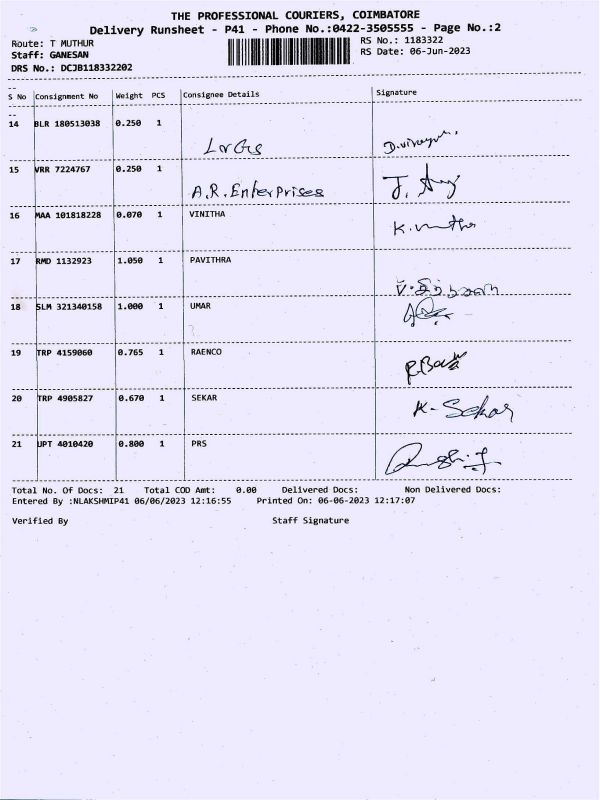 THE PROFESSIONAL COURIERS, COIMBATORE
Delivery Runsheet - P41 - Phone No.:0422-3505555 - Page No.:2
Route: T MUTHUR
RS No.: 1183322
Staff: GANESAN
RS Date: 06-Jun-2023
DRS No.: DCJB118332202
S No Consignment No Weight PCS Consignee Details Signature
14 BLR 180513038 0.250 1
15 VRR 7224767 0.250 1
A.R. Enterprises
16 MAA 101818228 0.070 1 VINITHA
17 RMD 1132923 1.050 1 PAVITHRA
18 SLM 321340158 1.000 1 UMAR
19 TRP 4159060 0.765 1 RAENCO
20 TRP 4905827 0.670 1 SEKAR K. Sekar
21 UPT 4010420 0.800 1 PRS
Total No. Of Docs: 21 Total COD Amt: 0.00 Delivered Docs: Non Delivered Docs:
Entered By :NLAKSHMIP41 06/06/2023 12:16:55 Printed On: 06-06-2023 12:17:07
Verified By Staff Signature